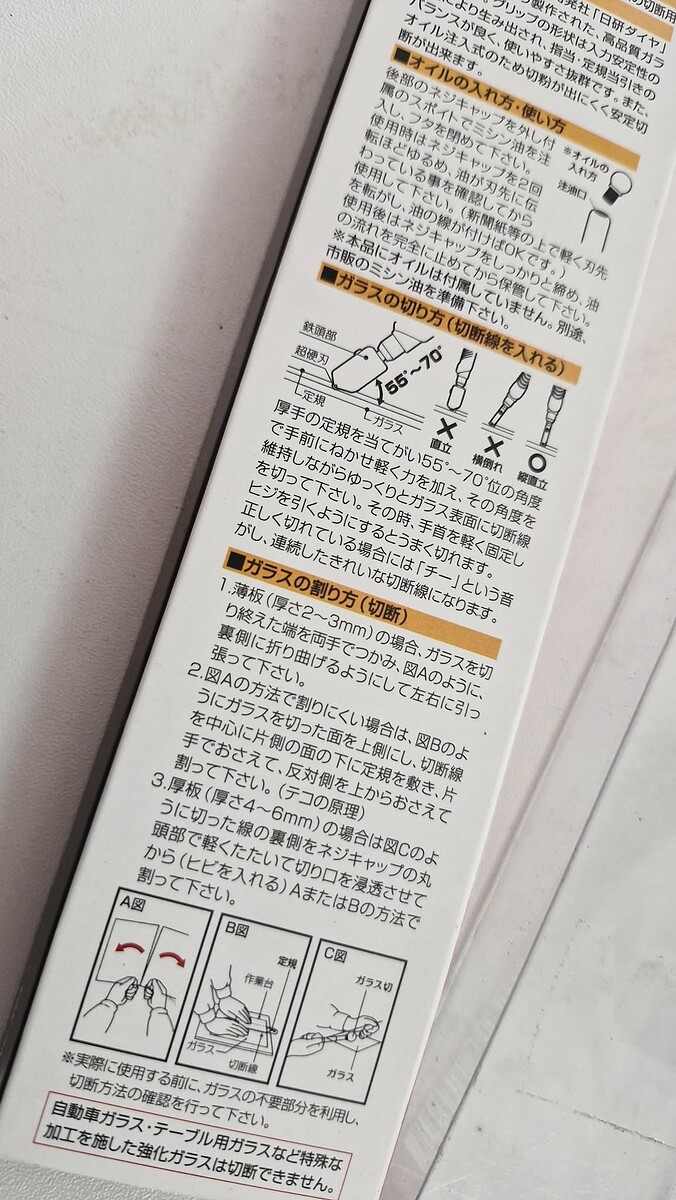 の切断用
発社「日研ダイヤ」
製作された、高品質ガラ
により生み出され、指当・定規当引きの
グリップの形状は入力安定性の
バランスが良く、使いやすさ抜群です。また、
オイル注入式のため切粉が出にくく安定切
断が出来ます。
■オイルの入れ方・使い方
後部のネジキャップを外し付
属のスポイトでミシン油を注
入し、フタを閉めて下さい。
使用時はネジキャップを2回
転ほどゆるめ、油が刃先に伝
わっている事を確認してから
使用して下さい。(新聞紙等の上で軽く刃先
を転がし、油の線が付けばOKです。)
使用後はネジキャップをしっかりと締め、油
の流れを完全に止めてから保管して下さい。
※本品にオイルは付属していません。別途、
市販のミシン油を準備下さい。
※オイルの
入れ方
注油口
■ガラスの切り方(切断線を入れる)
鉄頭部
超硬刃
定規
ガラス
55°~70°
×
直立
×
横倒れ
○
縦直立
厚手の定規を当てがい55°~70°位の角度
で手前にねかせ軽く力を加え、その角度を
維持しながらゆっくりとガラス表面に切断線
を切って下さい。その時、手首を軽く固定し
ヒジを引くようにするとうまく切れます。
正しく切れている場合には「チー」という音
がし、連続したきれいな切断線になります。
■ガラスの割り方(切断)
1.薄板(厚さ2~3mm)の場合、ガラスを切
り終えた端を両手でつかみ、図Aのように、
裏側に折り曲げるようにして左右に引っ
張って下さい。
2.図Aの方法で割りにくい場合は、図Bのよ
うにガラスを切った面を上側にし、切断線
を中心に片側の面の下に定規を敷き、片
手でおさえて、反対側を上からおさえて
割って下さい。(テコの原理)
3.厚板(厚さ4~6mm)の場合は図Cのよ
うに切った線の裏側をネジキャップの丸
頭部で軽くたたいて切り口を浸透させて
から(ヒビを入れる)AまたはBの方法で
割って下さい。
A図
B図
定規
作業台
ガラス
切断線
C図
ガラス切
ガラス
※実際に使用する前に、ガラスの不要部分を利用し、
切断方法の確認を行って下さい。
自動車ガラス・テーブル用ガラスなど特殊な
加工を施した強化ガラスは切断できません。